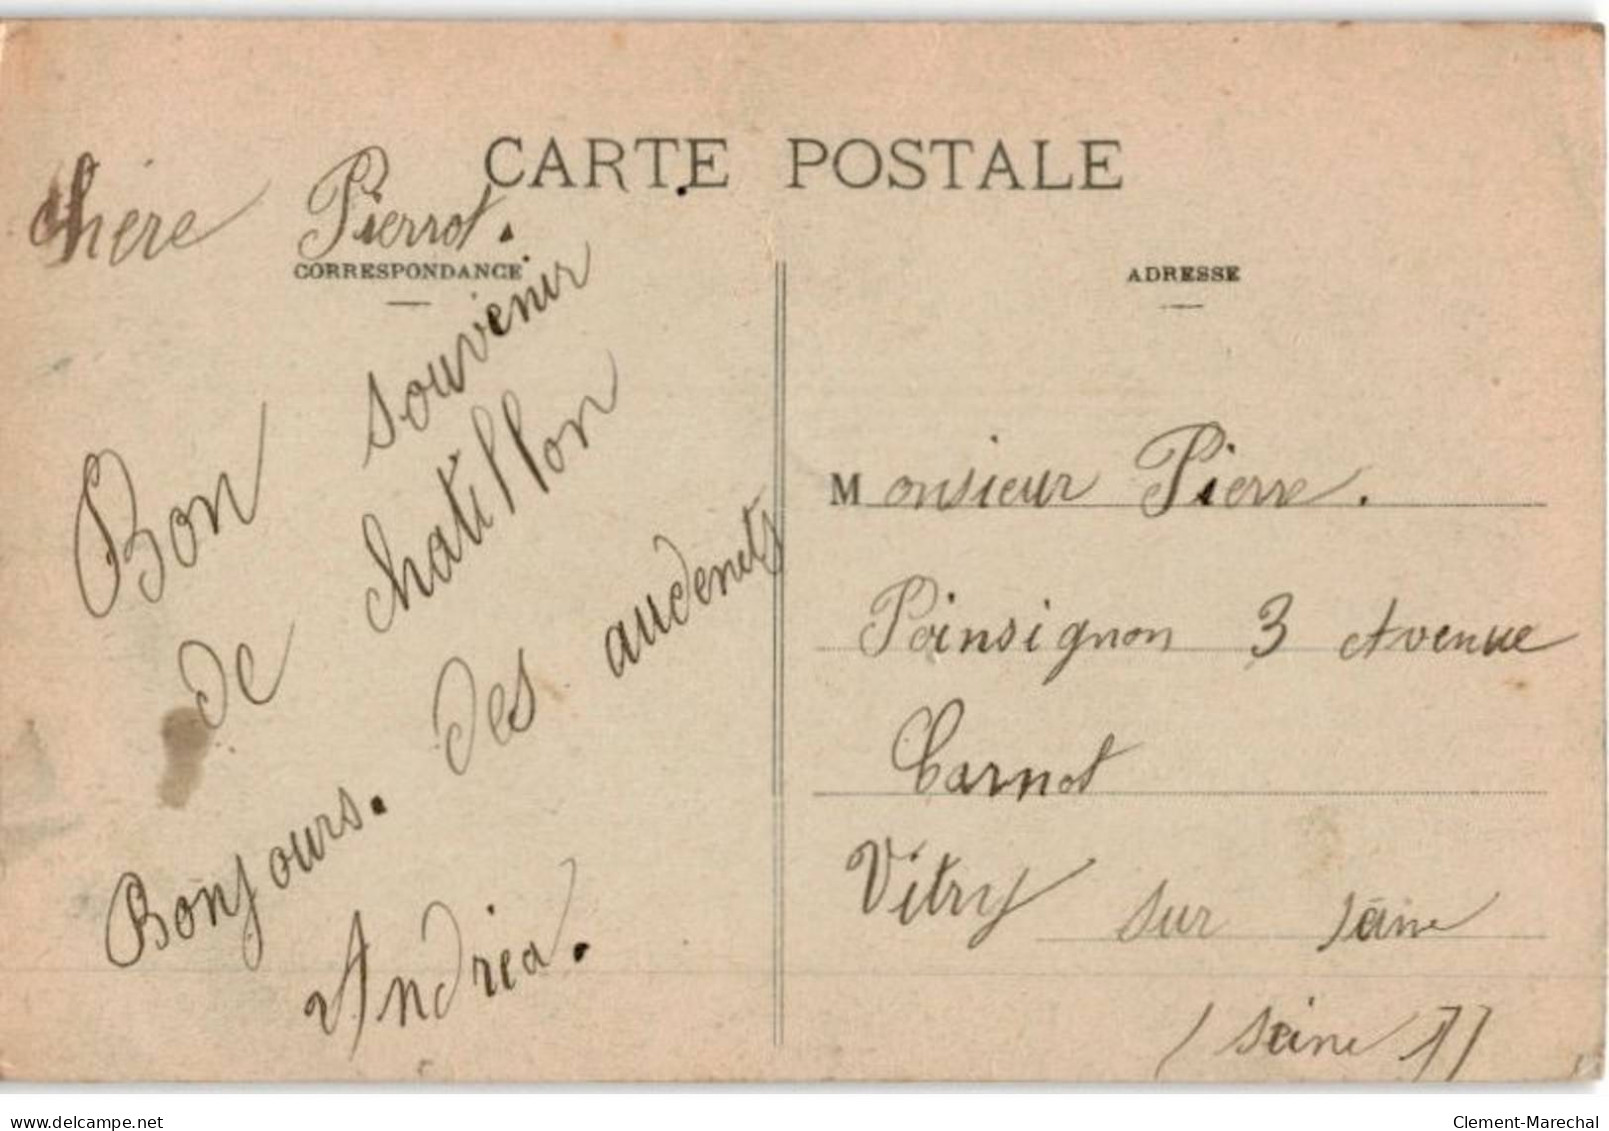 CARTE POSTALE
chère Pierrot.
CORRESPONDANCE
Bon souvenir
de chatillon
Bonjours. des audenets
Andrea.
ADRESSE
Monsieur Pierre.
Poinsignon 3 Avenue
Carnot
Vitry sur seine
(seine)
delcampe.net
Clement-Marechal